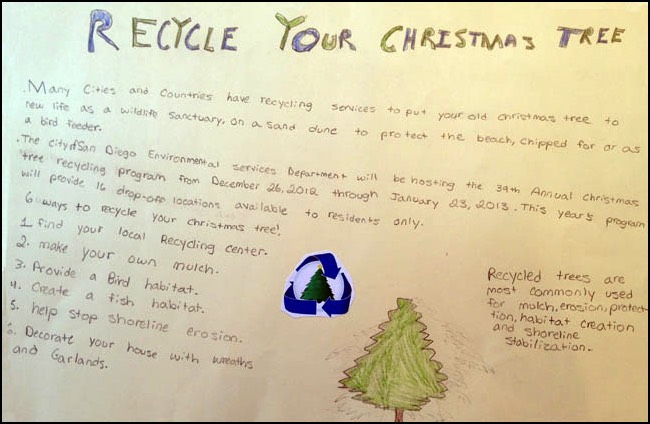 RECYCLE YOUR CHRISTMAS TREE
. Many Cities and Countries have recycling services to put your old christmas tree to
new life as a wildlife sanctuary, on a sand dune to protect the beach, chipped for or as
a bird feeder.
. The city of San Diego Environmental Services Department will be hosting the 39th Annual Christmas
tree recycling program from December 26, 2012 through January 23, 2013. This year's program
will provide 16 drop-off locations available to residents only.
6 ways to recycle your christmas tree!
1. find your local Recycling center.
2. make your own mulch.
3. Provide a Bird habitat.
4. Create a fish habitat.
5. help stop shoreline erosion.
6. Decorate your house with wreaths
and Garlands.
Recycled trees are
most commonly used
for mulch, erosion, protec-
tion, habitat creation
and shoreline
stabilization.